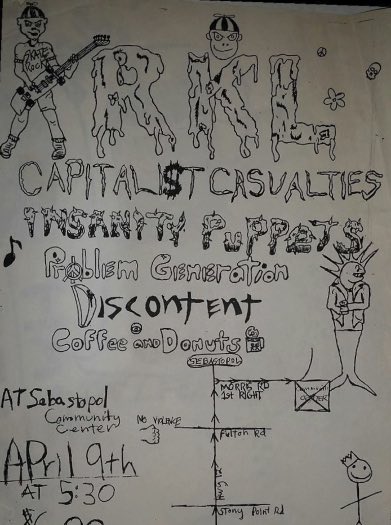 SKATE ROCK
RKL
CAPITALI$T CASUALTIES
INSANITY PUPPETS
Problem Generation
Discontent
Coffee and Donuts
SEBASTOPOL
MORRIS RD
1ST RIGHT
COMMUNITY
CENTER
AT Sebastopol
Community
Center
NO VIOLENCE
Fulton Rd
APril 9th
AT 5:30
Stony Point Rd